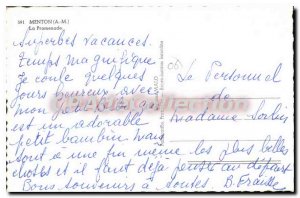 591 MENTON (A.-M.)
La Promenade
Superbes vacances.
Temps magnifique
Je coule quelques
jours heureux avec
mon petit
est un adorable
petit bambin mais
tout a une fin même les plus belles
choses et il faut déjà penser au
Bons souvenirs à toutes B.
Le Personnel
de
Madame